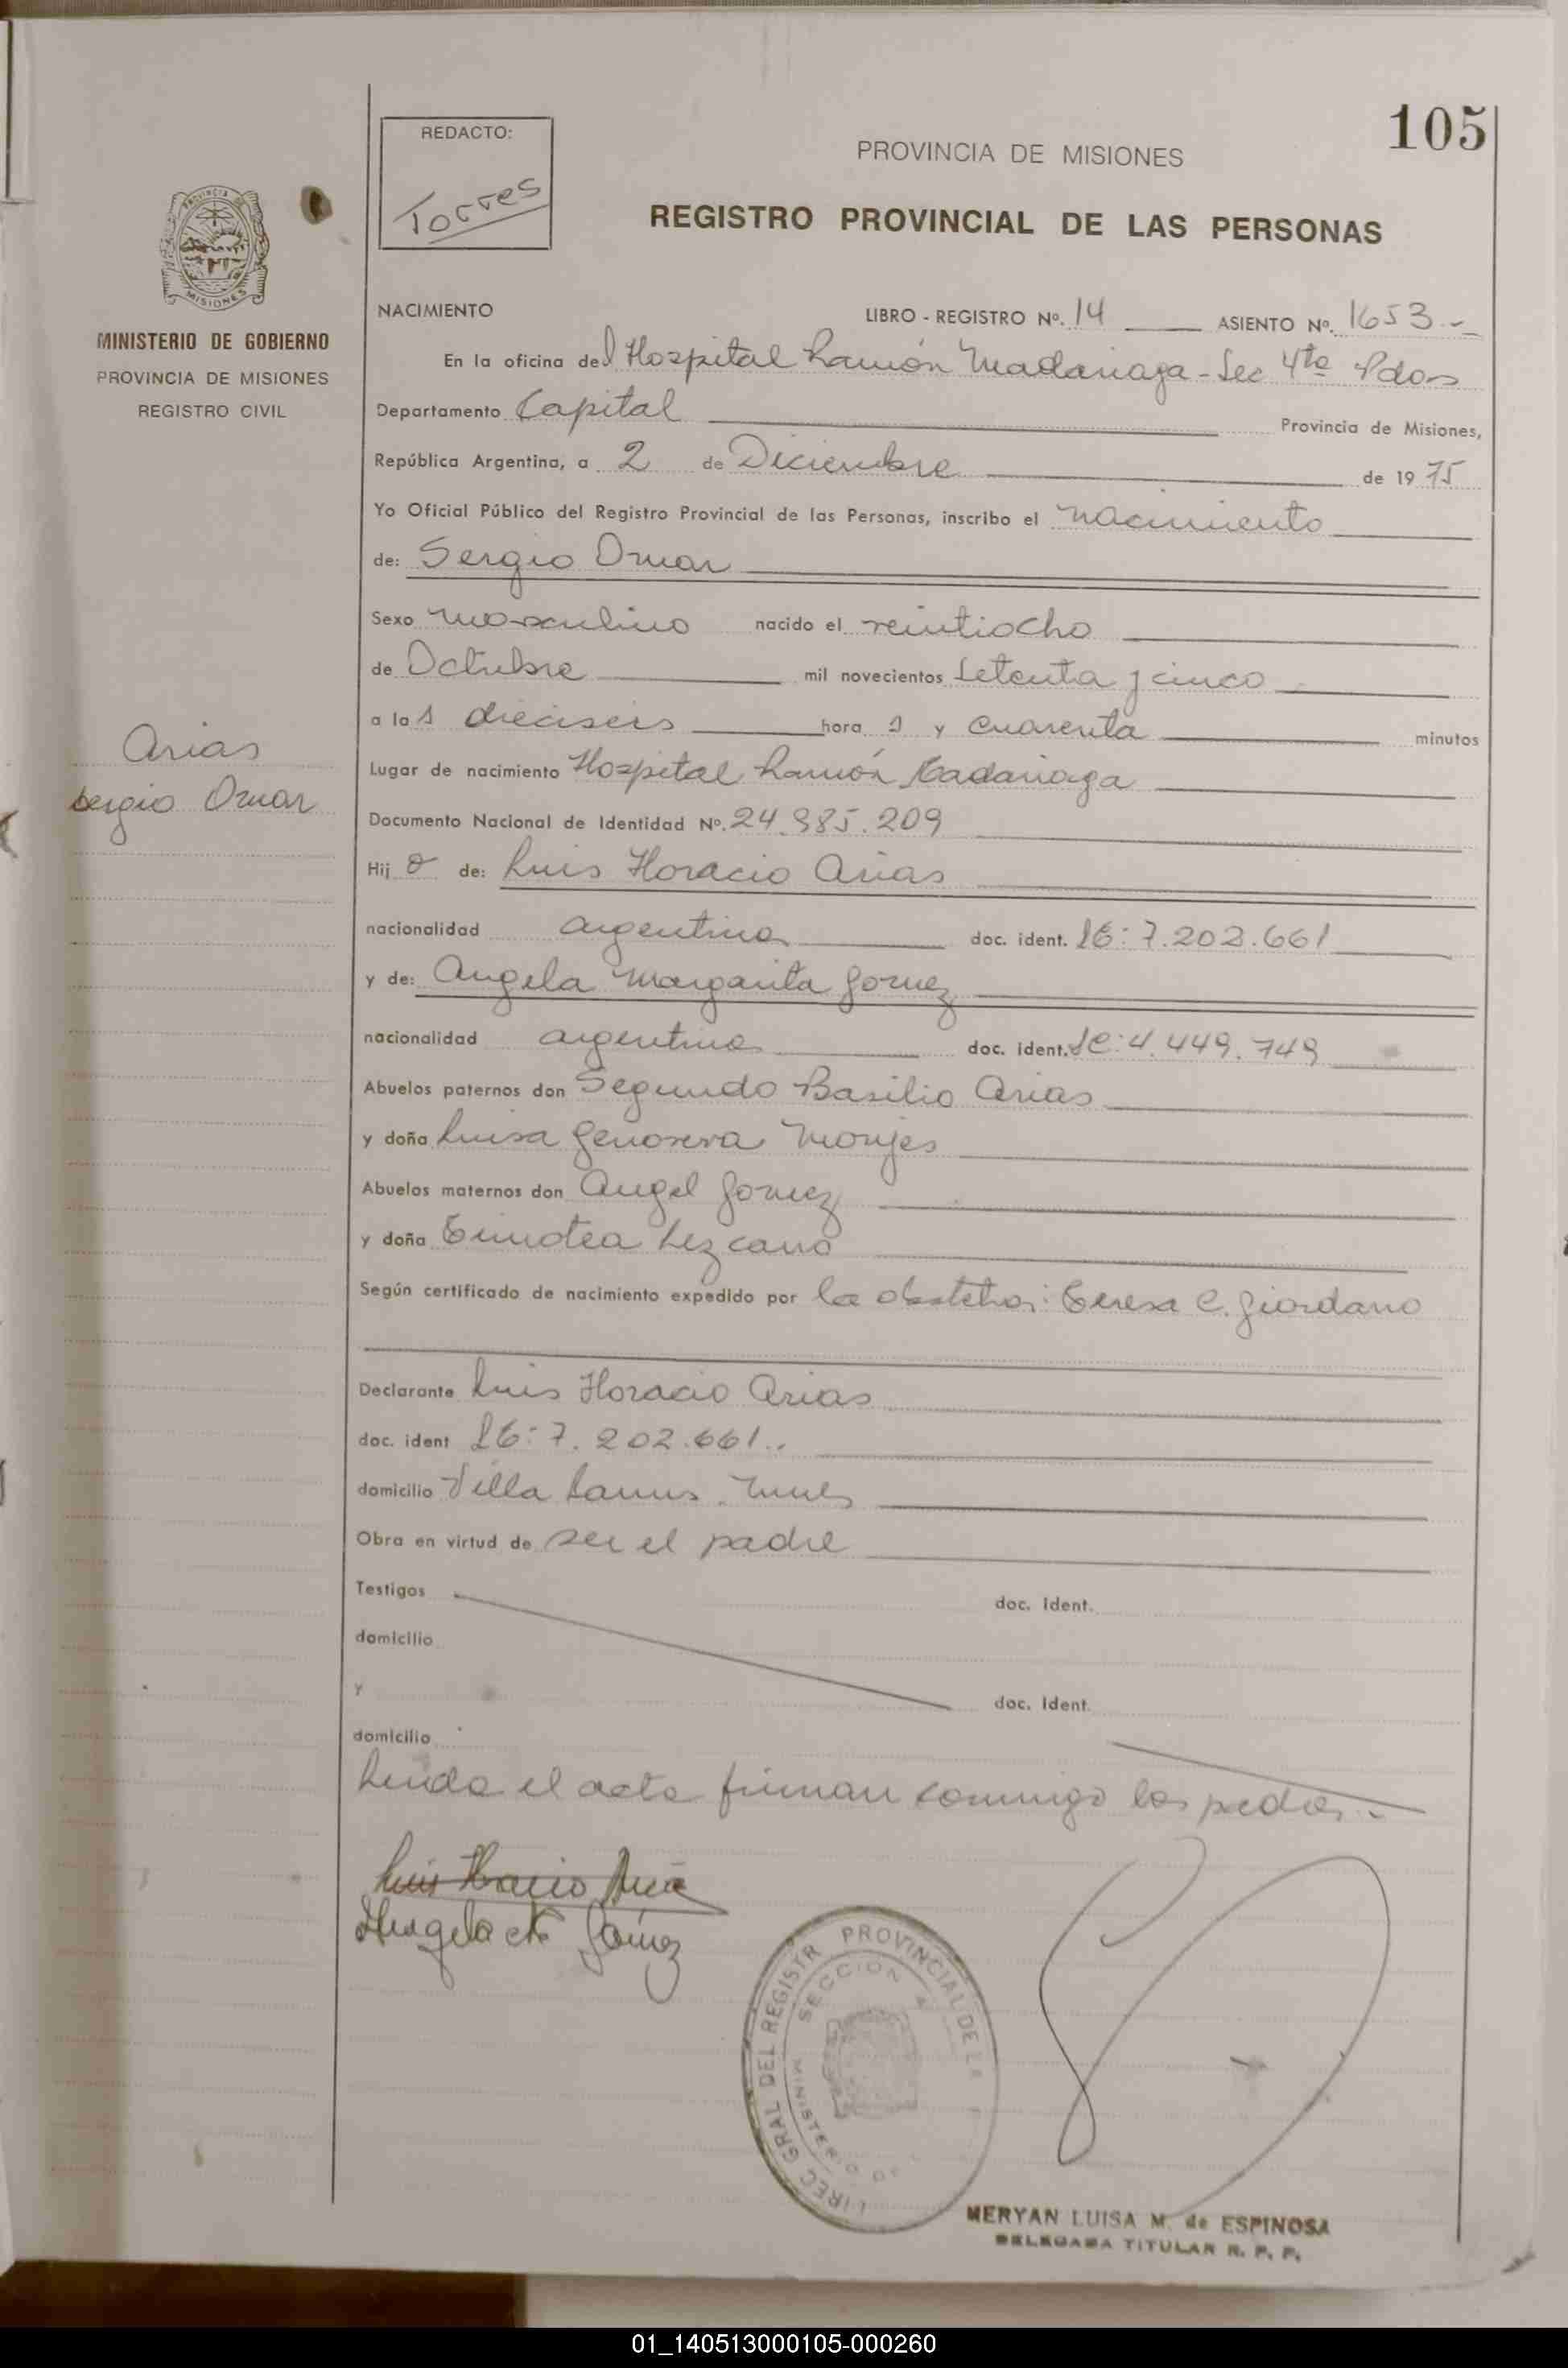 105
REDACTO:
Torres
PROVINCIA DE MISIONES
REGISTRO PROVINCIAL DE LAS PERSONAS
PROVINCIA DE
MISIONES
MINISTERIO DE GOBIERNO
PROVINCIA DE MISIONES
REGISTRO CIVIL
NACIMIENTO LIBRO - REGISTRO Nº. 14 ASIENTO Nº. 1653.-
En la oficina del Hospital Ramón Madariaga - Sec 4ta Pdas
Departamento Capital Provincia de Misiones,
República Argentina, a 2 de Diciembre de 1975
Yo Oficial Público del Registro Provincial de las Personas, inscribo el nacimiento
de: Sergio Omar
Sexo masculino nacido el veintiocho
de Octubre mil novecientos setenta y cinco
a las dieciseis horas y cuarenta minutos
Arias
Sergio Omar
Lugar de nacimiento Hospital Ramón Madariaga
Documento Nacional de Identidad Nº. 24.985.209
Hijo de: Luis Horacio Arias
nacionalidad argentina doc. ident. LE: 7.202.661
y de: Angela Margarita Gomez
nacionalidad argentina doc. ident. LC: 4.449.749
Abuelos paternos don Segundo Basilio Arias
y doña Luisa Genoveva Monjes
Abuelos maternos don Angel Gomez
y doña Timotea Lezcano
Según certificado de nacimiento expedido por la obstetra: Teresa C. Giordano
Declarante Luis Horacio Arias
doc. ident LE: 7.202.661.
domicilio Villa Lanus
Obra en virtud de ser el padre
Testigos doc. ident.
domicilio
y doc. ident.
domicilio
Leida el acta firman conmigo los padres.-
Luis Horacio Aria
Angela M Gómez
DIREC GRAL DEL REGISTR PROVINCIAL DE LA
SECCION 4
MINISTERIO DE
MERYAN LUISA M. de ESPINOSA
DELEGADA TITULAR R. P. P.
01_140513000105-000260